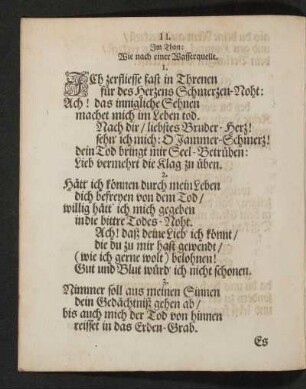 II.
Im Thon:
Wie nach einer Wasserquelle.
1.
ICh zerfliesse fast in Threnen
für des Herzens Schmerzen-Noht:
Ach! das innigliche Sehnen
machet mich im Leben tod.
Nach dir/ liebstes Bruder-Herz!
sehn' ich mich: O Jammer-Schmerz!
dein Tod bringt mir Seel-Betrüben:
Lieb vermehrt die Klag zu üben.
2.
Hätt' ich können durch mein Leben
dich befreyen von dem Tod/
willig hätt' ich mich gegeben
in die bittre Todes-Noht.
Ach! daß deine Lieb' ich könnt/
die du zu mir hast gewendt/
(wie ich gerne wolt) belohnen!
Gut und Blut würd' ich nicht schonen.
3.
Nimmer soll aus meinen Sinnen
dein Gedächtniß gehen ab/
bis auch mich der Tod von hinnen
reisset in das Erden-Grab.
Es